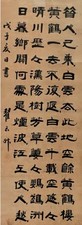 昔人已乘白雲去此地空餘黃鶴樓
黃鶴一去不復返白雲千載空悠悠
晴川歷歷漢陽樹芳草萋萋鸚鵡洲
日暮鄉關何處是煙波江上使人愁
戊子夏日書